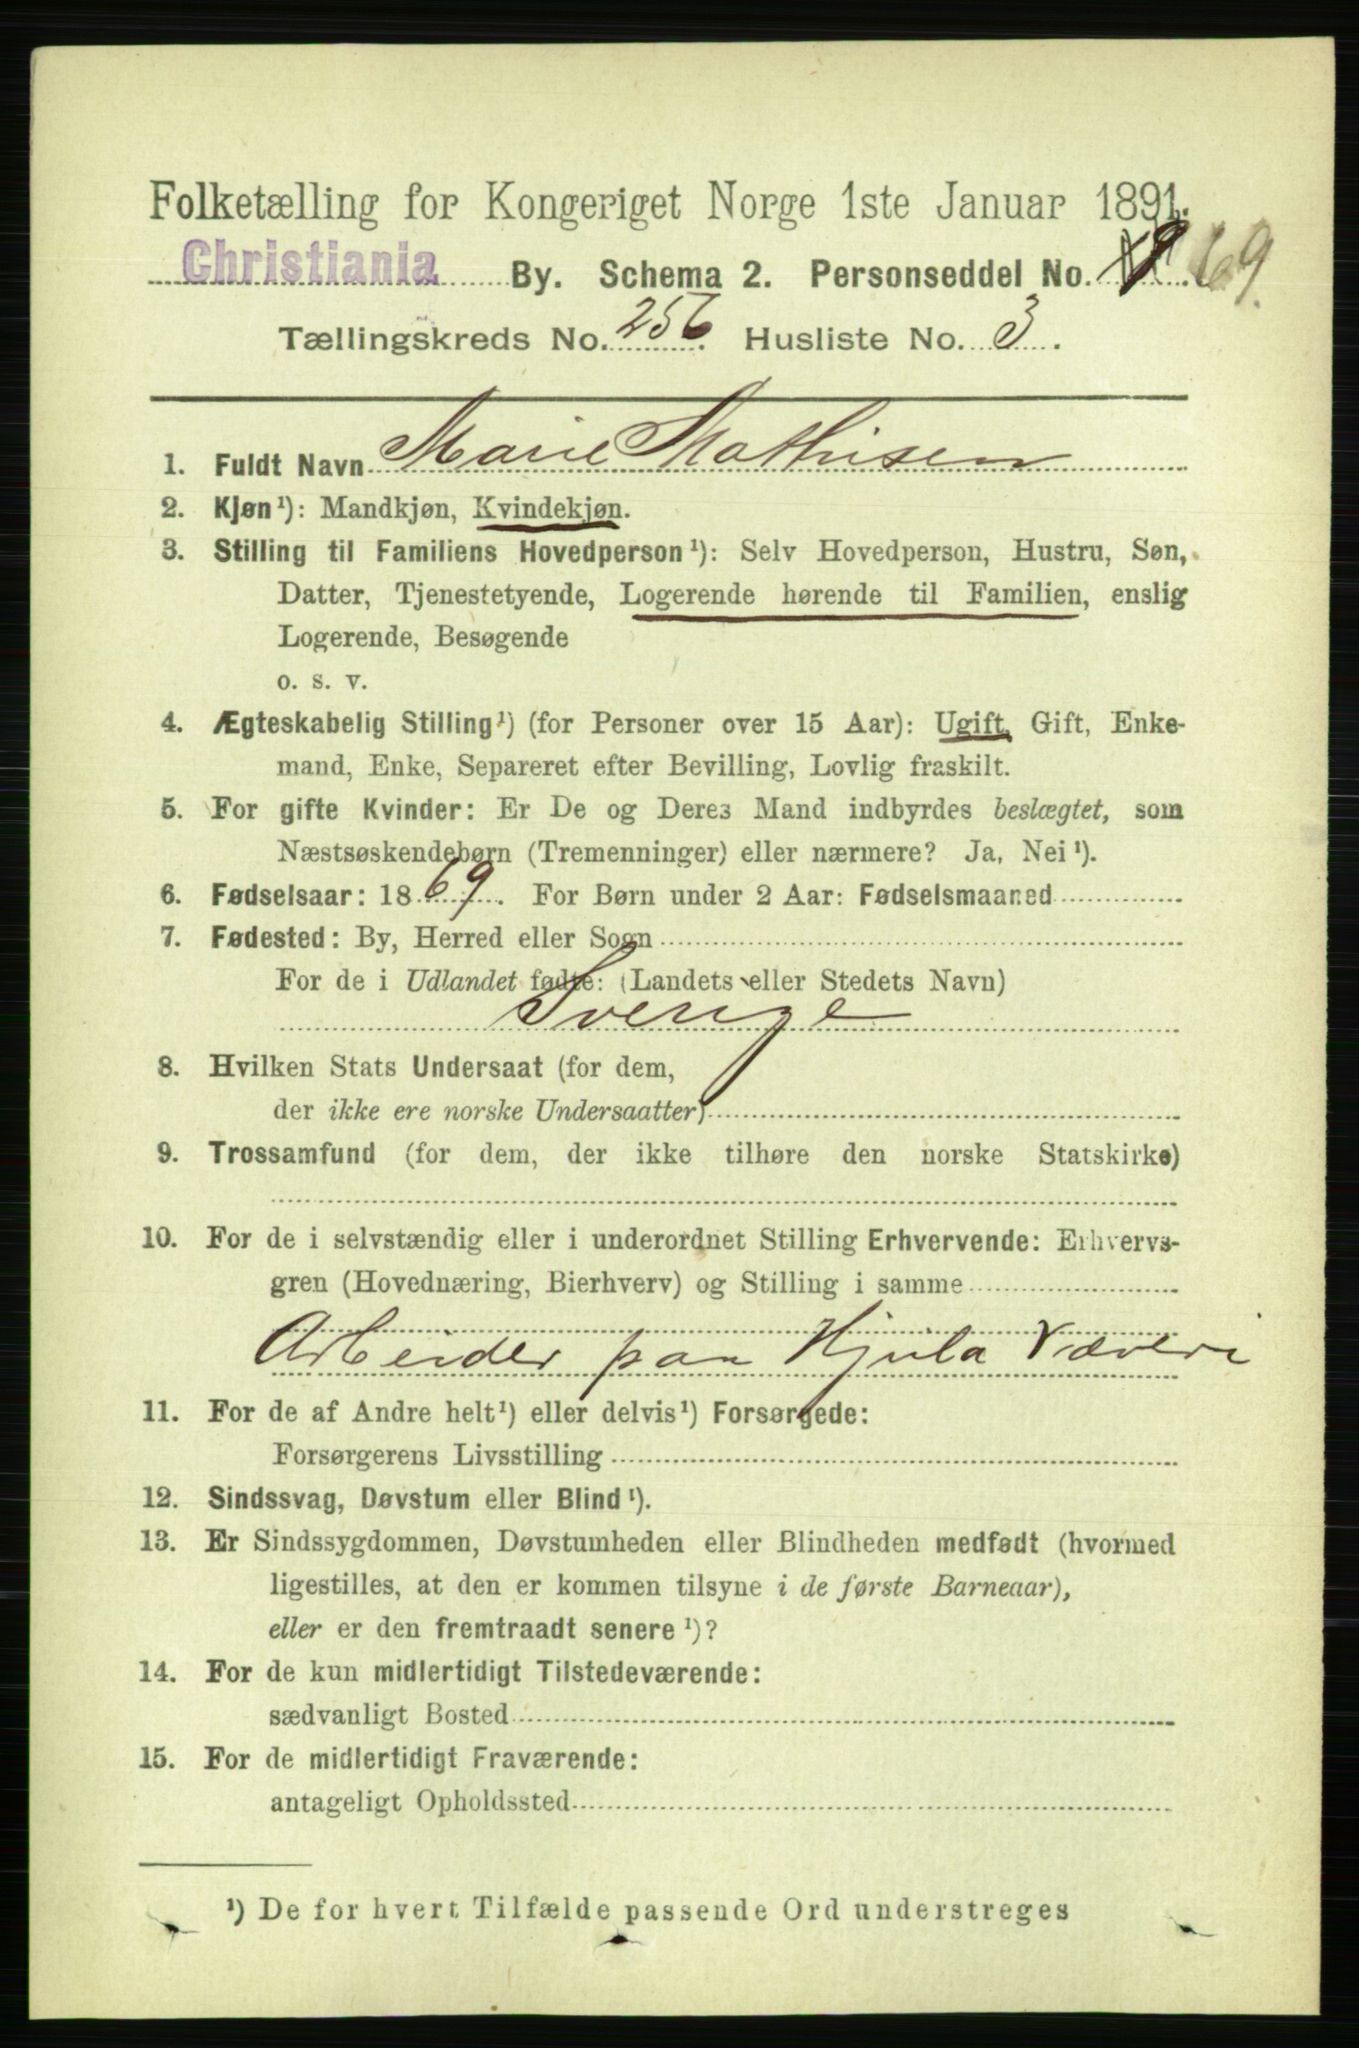 Folketælling for Kongeriget Norge 1ste Januar 1891.
Christiania By. Schema 2. Personseddel No. 69.
Tællingskreds No. 256. Husliste No. 3.
1. Fuldt Navn Marie Mathisen
2. Kjøn¹): Mandkjøn, Kvindekjøn.
3. Stilling til Familiens Hovedperson¹): Selv Hovedperson, Hustru, Søn,
Datter, Tjenestetyende, Logerende hørende til Familien, enslig
Logerende, Besøgende
o. s. v.
4. Ægteskabelig Stilling¹) (for Personer over 15 Aar): Ugift, Gift, Enke-
mand, Enke, Separeret efter Bevilling, Lovlig fraskilt.
5. For gifte Kvinder: Er De og Deres Mand indbyrdes beslægtet, som
Næstsøskendebørn (Tremenninger) eller nærmere? Ja, Nei¹).
6. Fødselsaar: 1869. For Børn under 2 Aar: Fødselsmaaned
7. Fødested: By, Herred eller Sogn
For de i Udlandet fødte: (Landets eller Stedets Navn)
Sverige
8. Hvilken Stats Undersaat (for dem,
der ikke ere norske Undersaatter)
9. Trossamfund (for dem, der ikke tilhøre den norske Statskirke)
10. For de i selvstændig eller i underordnet Stilling Erhvervende: Erhvervs-
gren (Hovednæring, Bierhverv) og Stilling i samme
Arbeider paa Hjula Væveri
11. For de af Andre helt¹) eller delvis¹) Forsørgede:
Forsørgerens Livsstilling
12. Sindssvag, Døvstum eller Blind¹).
13. Er Sindssygdommen, Døvstumheden eller Blindheden medfødt (hvormed
ligestilles, at den er kommen tilsyne i de første Barneaar),
eller er den fremtraadt senere¹)?
14. For de kun midlertidigt Tilstedeværende:
sædvanligt Bosted
15. For de midlertidigt Fraværende:
antageligt Opholdssted
¹) De for hvert Tilfælde passende Ord understreges